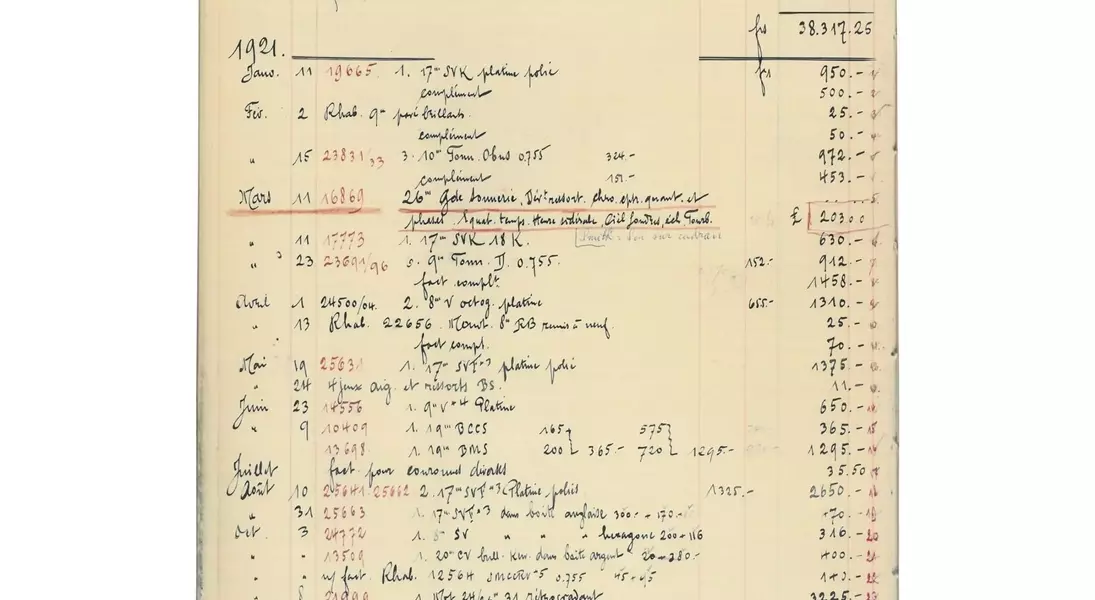 frs 38.317.25
1921.
Janv. 11 19665 1. 17''' SVK platine polie frs 950.-
complément 500.-
Fév. 2 Rhab. 9''' pavé brillants. 25.-
complément 50.-
" 15 23831/33 3. 10''' Tonn. Obus 0.755 324.- 972.-
complément 151.- 453.-
Mars 11 16869 26''' Gde Sonnerie, Chro. eph. quant. et
phases. Equat. temps. Heure sidérale, Ciel Londres, éch Tourb. £ 203 0 0
" 11 17773 1. 17''' SVK 18 K. sur cadran 630.-
" 23 23691/96 6. 9''' Tonn. II. 0.755. 152.- 912.-
fact complt. 1458.-
Avril 1 24500/04. 2. 8''' V octog. platine 655.- 1310.-
" 13 Rhab. 22656. Mouvt. 8''' RB remis à neuf. 25.-
fact compt. 70.-
Mai 19 25631 1. 17''' SVF #3 platine polie 1375.-
" 24 4 jeux aig. et ressorts BS. 11.-
Juin 23 14556 1. 9''' V #4 Platine 650.-
" 9 10409 1. 19''' BCCS 165 575 365.-
13698 1. 19''' BMS 200 365.- 720 1295.- 1295.-
Juillet fact. pour couronnes diverses 35.50
Août 10 25641.25662 2. 17''' SVF #3 Platine polies 1325.- 2650.-
" 31 25663 1. 17''' SVF #3 dans boîte anglaise 300.- + 170.- 470.-
Oct. 3 24772 1. 8''' SV " " " hexagone 200 + 116 316.-
" " 13509 1. 20''' CV bull. Km. dans boîte argent 400.-
" " n/ fact. Rhab. 12564 #5 0.755 45 + 95 140.-
" 8 21999 1. Mvt 24/ 31 rétrogradant 3225.-